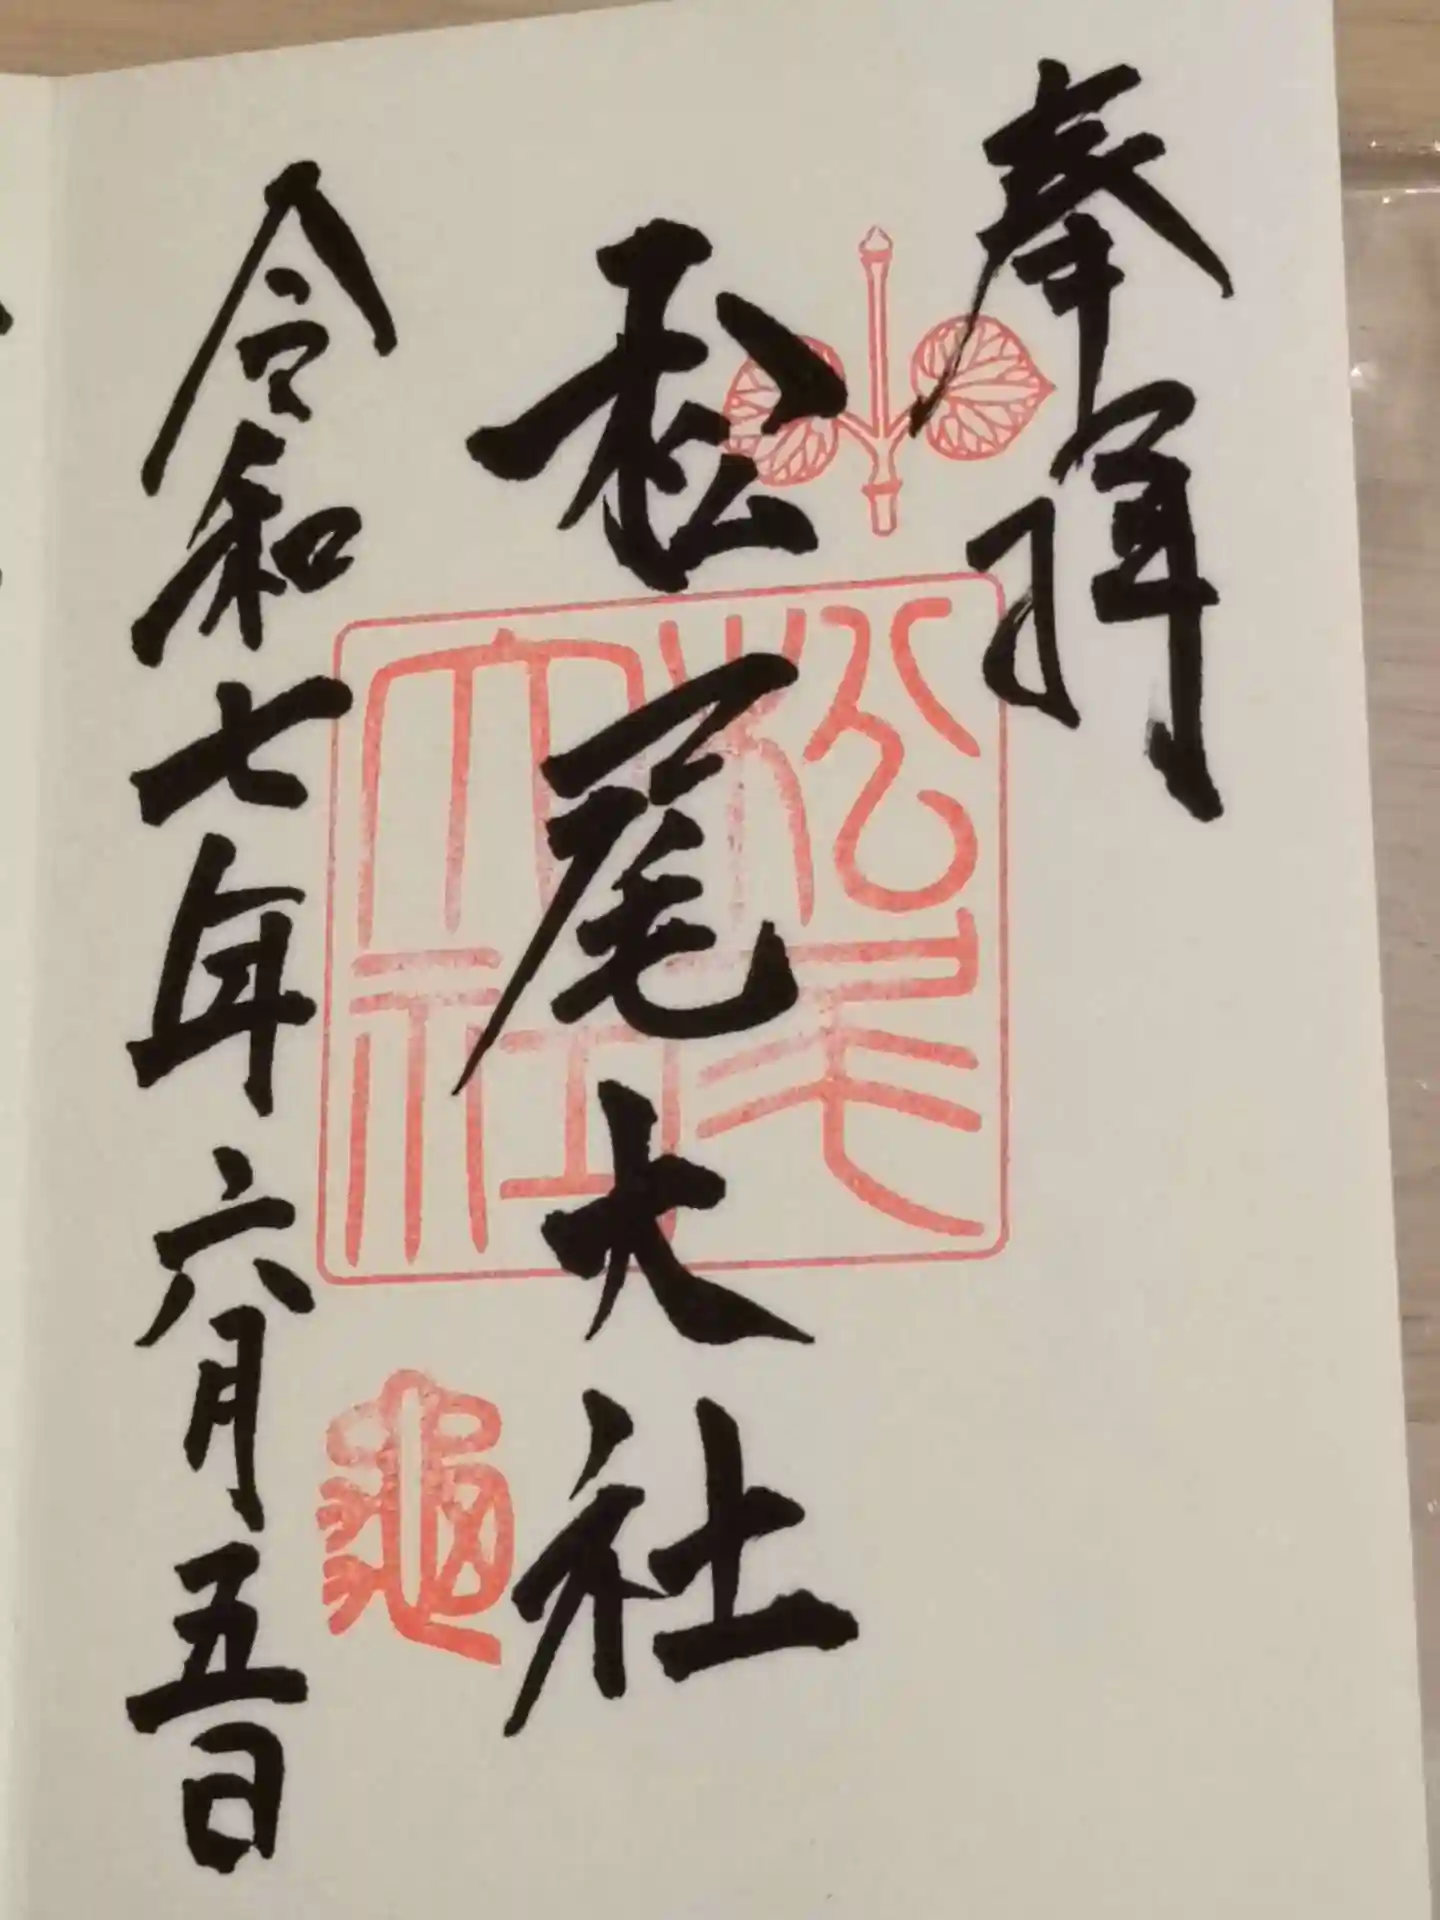 奉拝
松尾大社
松尾大社
龜
令和七年六月五日